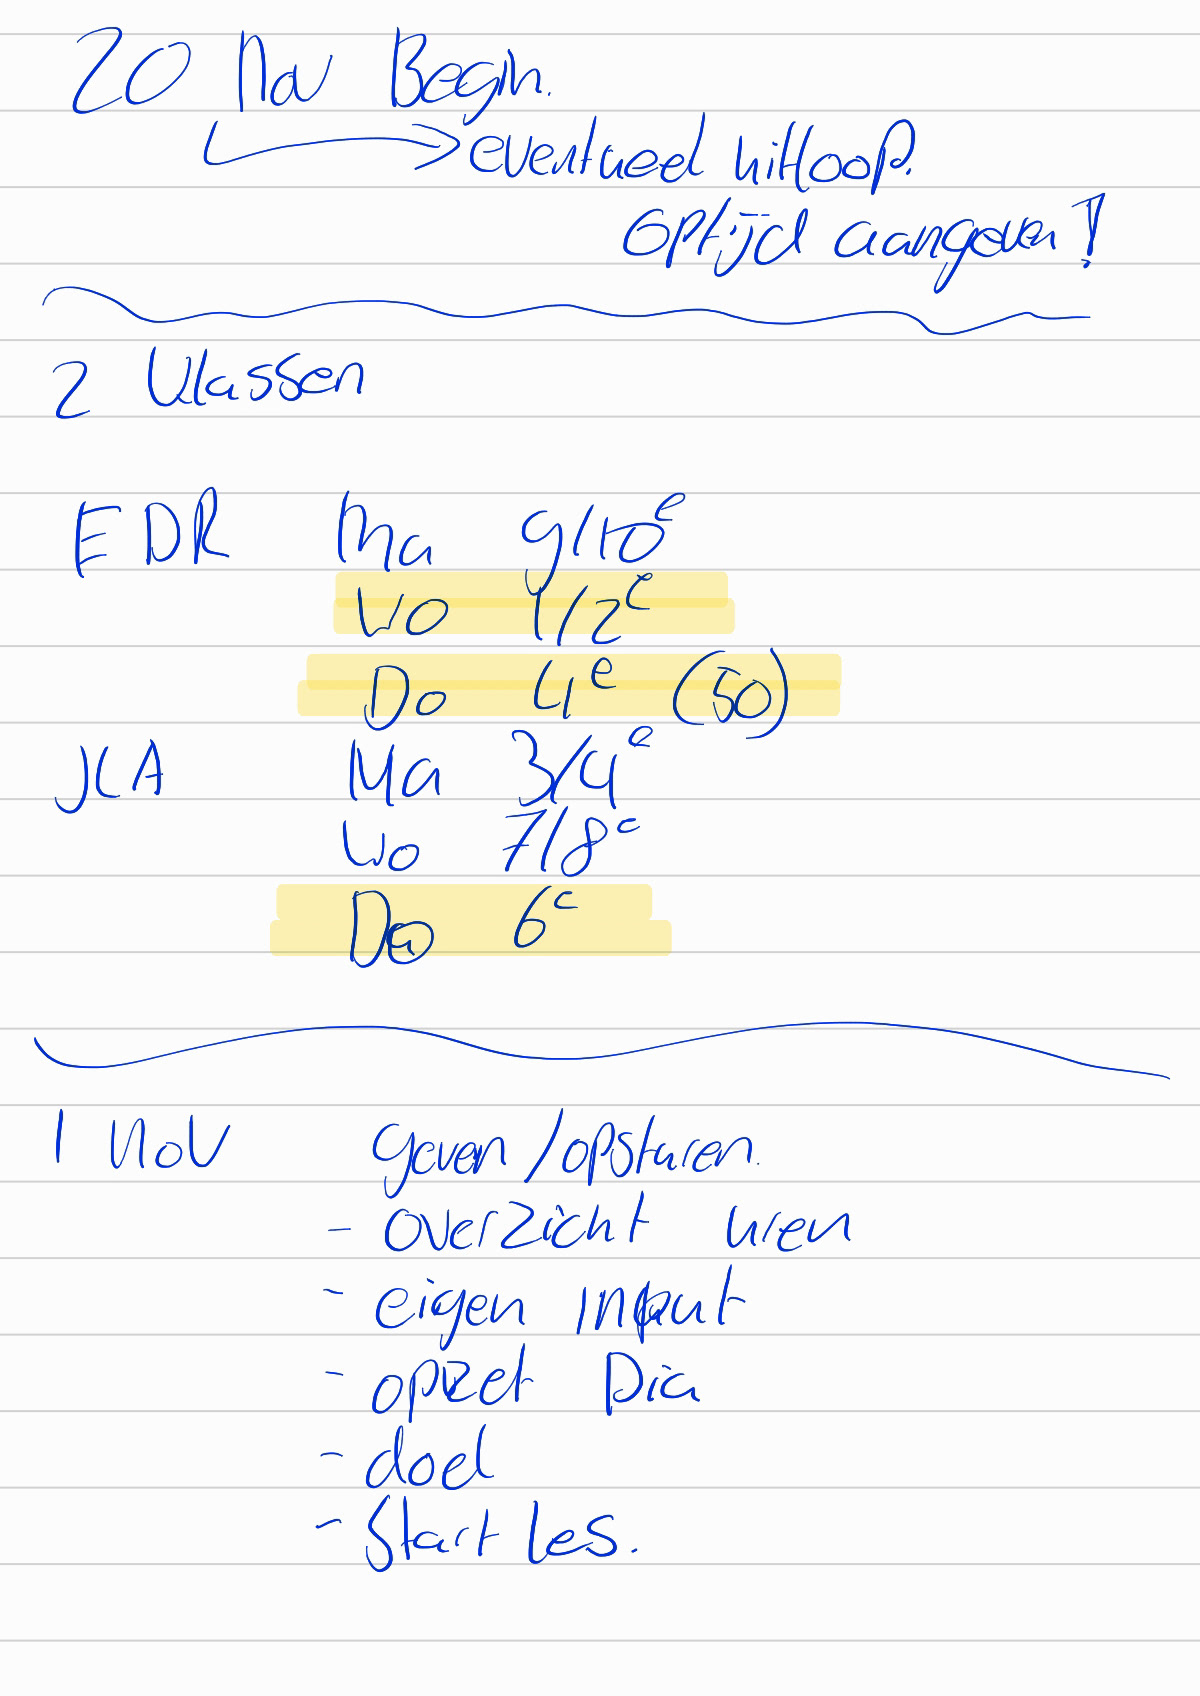 20 Nov Begin.
eventueel uitloop.
optijd aangeven!
2 klassen
EDR Ma 9/10e
Wo 1/2e
Do 4e (50)
JCA Ma 3/4e
Wo 7/8e
Do 6e
1 Nov geven/opsturen.
- overzicht uren
- eigen input
- opzet Dia
- doel
- Start les.